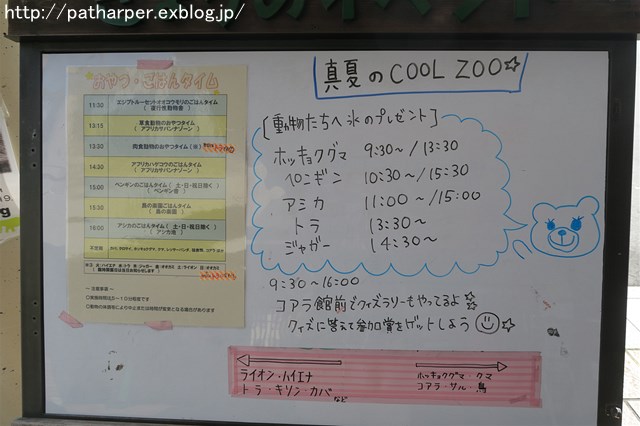 http://patharper.exblog.jp/
おやつ・ごはんタイム
11:30 エジプトルーセットオオコウモリのごはんタイム
13:15 草食動物のおやつタイム
(アフリカサバンナゾーン)
13:30 肉食動物のおやつタイム(※)
14:30 アフリカハゲコウのごはんタイム
(アフリカサバンナゾーン)
15:00 ペンギンのごはんタイム(土・日・祝日除く)
15:30 鳥の楽園ごはんタイム
(鳥の楽園)
16:00 アシカのごはんタイム(土・日・祝日除く)
不定期
~注意事項~
真夏のCOOL ZOO☆
[動物たちへ氷のプレゼント]
ホッキョクグマ 9:30~/13:30
ペンギン 10:30~/15:30
アシカ 11:00~/15:00
トラ 13:30~
ジャガー 14:30~
9:30~16:00
コアラ館前でクイズラリーもやってるよ☆
クイズに答えて参加賞をゲットしよう☆
ライオン・ハイエナ
トラ・キリン・カバ など
ホッキョクグマ・クマ
コアラ・サル・鳥